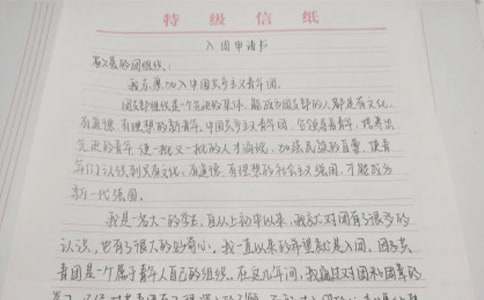 特级信纸
入团申请书
敬爱的团组织：
我志愿加入中国共产主义青年团。
团支部组织是一个先进的集体，能成为团支部的人都是有文化、
有道德、有理想的新青年。中国共产主义青年团，它领导着青年，培养出
先进的青年，使一批又一批的人才涌现，加强民族的自尊，使青
年们认识到只有文化，有道德，有理想的社会主义强国，才能成为
新一代强国。
我是一名大一的学生，自从上初中以来，我就对团有了很多的
认识，也有了很大的好奇心。我一直以来的希望就是入团。团
青团是一个属于青年人自己的组织。在这几年间，我通过对团和团章的